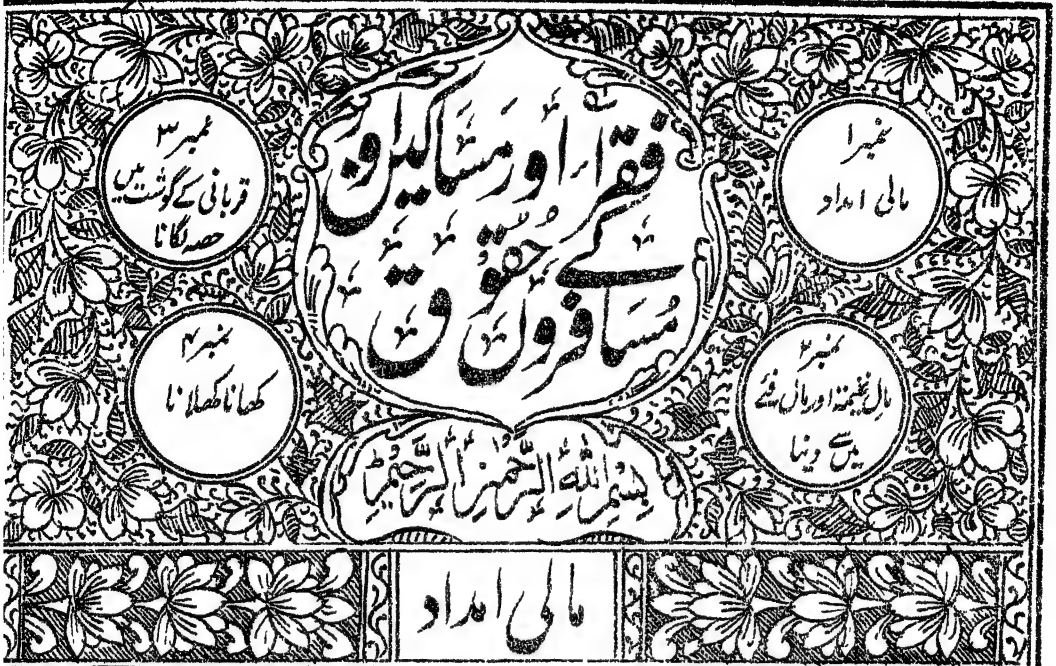 فقراء اور مساکین اور
مسافروں کے حقوق
نمبر ۱
مالی امداد
نمبر ۲
مالِ غنیمت اور مالِ فئے
میں سے دینا
نمبر ۳
قربانی کے گوشت میں
حصہ لگانا
نمبر ۴
کھانا کھلانا
بِسْمِ اللهِ الرَّحْمٰنِ الرَّحِيْمِ
مالی امداد